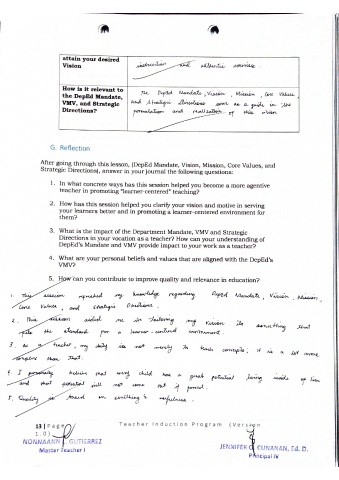 attain your desired
Vision
instruction and authentic exercise.
How is it relevant to
the DepEd Mandate,
VMV, and Strategic
Directions?
The DepEd Mandate, Vision, Mission, Core Values,
and Strategic Directions serve as a guide in the
formulation and realization of this vision
G. Reflection
After going through this lesson, (DepEd Mandate, Vision, Mission, Core Values, and
Strategic Directions), answer in your journal the following questions:
1. In what concrete ways has this session helped you become a more agentive
teacher in promoting "learner-centered" teaching?
2. How has this session helped you clarify your vision and motive in serving
your learners better and in promoting a learner-centered environment for
them?
3. What is the impact of the Department Mandate, VMV and Strategic
Directions in your vocation as a teacher? How can your understanding of
DepEd's Mandate and VMV provide impact to your work as a teacher?
4. What are your personal beliefs and values that are aligned with the DepEd's
VMV?
5. How can you contribute to improve quality and relevance in education?
1. This session refreshed my knowledge regarding DepEd Mandate, Vision, Mission,
Core Values, and Strategic Directions.
2. This session aided me in my vision to something that
the standard for a learner-centered environment.
3. As a teacher, my duty is not merely to teach concepts; it is a lot more
complex than that.
4. I personally believe that every child has a great potential living inside of him
and that potential will not come out if forced.
5. Quality is based on usefulness.
13 | Page
Teacher Induction Program (Version
1.0)
NONNAANN GUTIERREZ
Master Teacher I
JENNIFER CUNANAN, Ed. D.
Principal IV